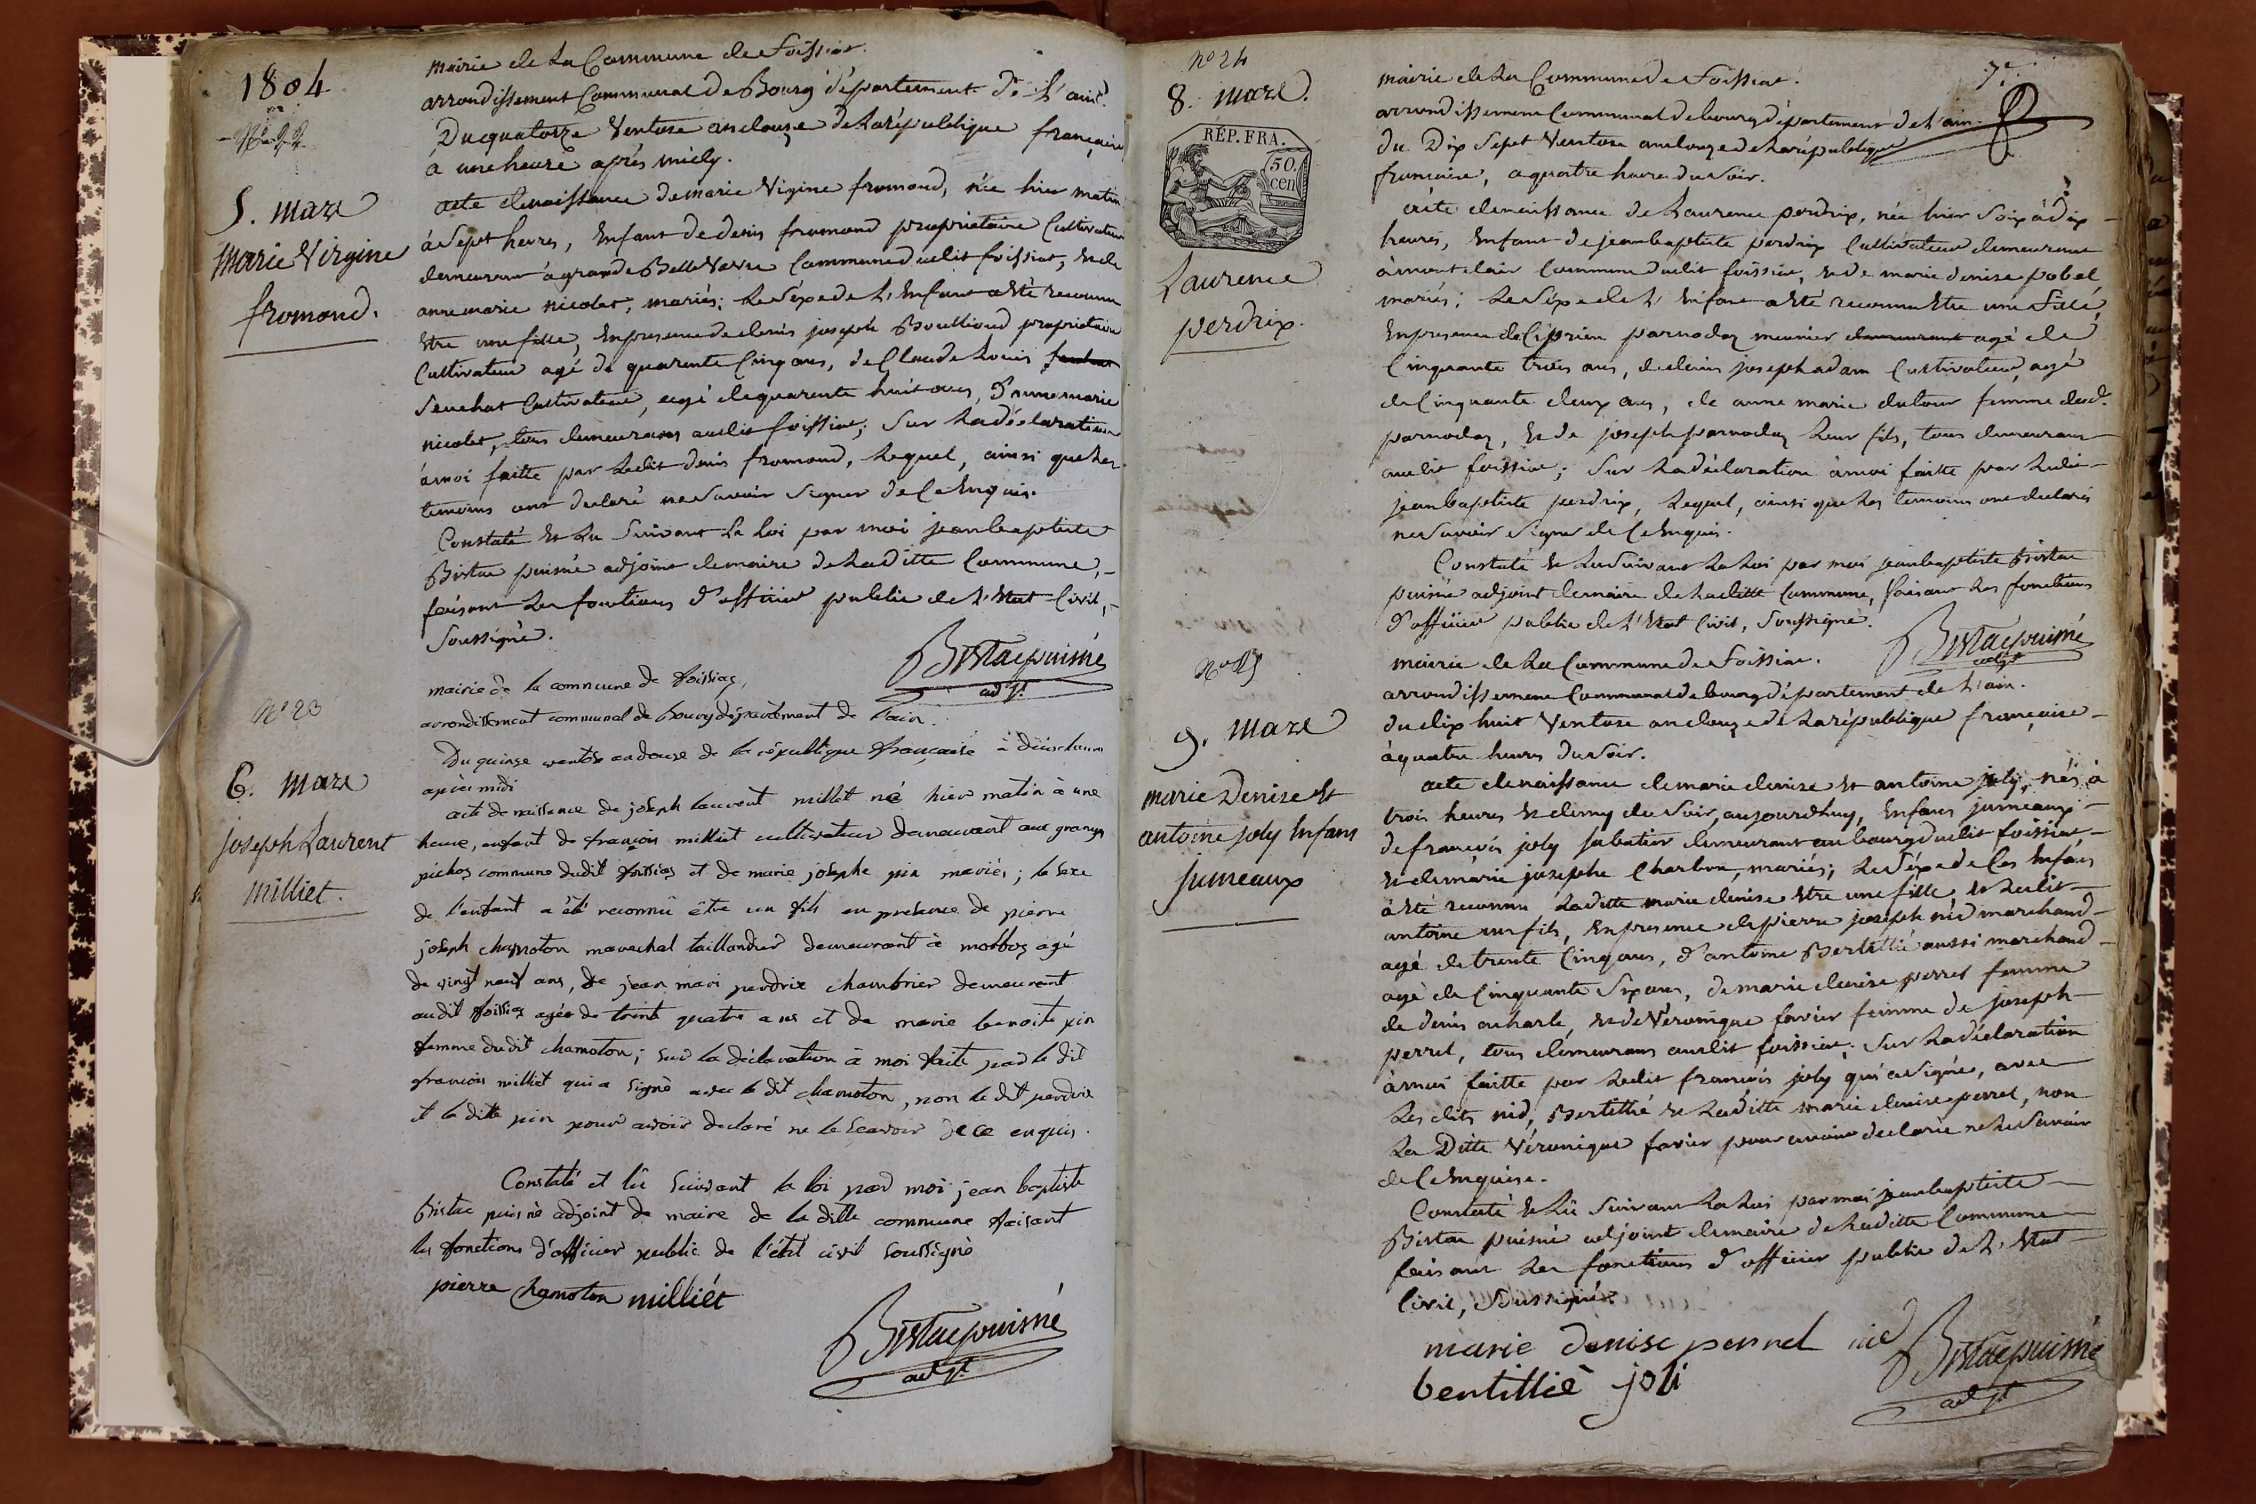 1804
N° 22
5. mars
marie Virgine
fromond.
mairie de la Commune de foissiat.
arrondissement Communal de Bourg département de l'ain.
Du quatorze Ventose an douze de la république française
à une heure après midy.
acte de naissance de marie Virgine fromond, née hier matin
à sept heures, Enfant de denis fromond propriétaire Cultivateur
demeurant à grande Belle Vavre Commune dudit foissiat, et de
anne marie nicolet, mariés; le séxe de l'Enfant a été reconnu
Etre une fille, En presence de denis joseph Boullioud propriétaire
Cultivateur agé de quarente Cinq ans, de Claude Louis
Seuchat Cultivateur, agé de quarente huit ans, d'anne marie
nicolet, tous demeurans audit foissiat; Sur la déclaration
à moi faitte par Ledit denis fromond, Lequel, ainsi que les
temoins ont declaré ne Savoir Signer de Ce Enquis.
Constaté et Lu Suivant la Loi par moi jean baptiste
Bistac puisné adjoint de maire de la ditte Commune,
faisant les fonctions d'officier public de l'Etat Civil,
Soussigné.
Bistac puisné
adjt.
N° 23
6. mars
joseph Laurent
milliet.
mairie de la commune de foissiaz,
arrondissement communal de Bourg département de l'ain.
Du quinze ventose an douze de la république française à deux heures
après midi
acte de naissance de joseph laurent milliet né hier matin à une
heure, enfant de françois milliet cultivateur demeurant aux granges
pichoz commune dudit foissiaz et de marie josephe pin mariés; le sexe
de l'enfant a été reconnu être un fils en presence de pierre
joseph chamoton marechal taillandier demeurant à malboz agé
de vingt neuf ans, de jean mari perdrix chambrier demeurant
audit foissiaz agée de trente quatre ans et de marie benoite pin
femme dudit chamoton; sur la déclaration à moi faite par le dit
françois milliet qui a signé avec le dit chamoton, non le dit perdrix
et la dite pin pour avoir declaré ne le scavoir de ce enquis.
Constaté et lû suivant la loi par moi jean baptiste
Bistac puisné adjoint de maire de la ditte commune faisant
les fonctions d'officier public de l'état civil soussigné
pierre chamoton milliét
Bistac puisné
adjt.
N° 24
8. mars.
RÉP. FRA.
50.
cen
Laurence
perdrix.
7e.
mairie de la Commune de foissiat.
arrondissement Communal de bourg département de l'ain.
du Dix Sept Ventose an douze de la république
française, a quatre heures du Soir.
acte de naissance de Laurence perdrix, née hier Soir à dix
heures, Enfant de jean baptiste perdrix Cultivateur demeurant
à montclair Commune dudit foissiat, et de marie denise pobel
mariés; Le Séxe de l'Enfant a été reconnu Etre une fille,
En presence de Ciprien parnodaz meunier demeurant agé de
Cinquante trois ans, de denis joseph adam Cultivateur, agé
de Cinquante deux ans, de anne marie dutour femme dud.
parnodaz, et de joseph parnodaz leur fils, tous demeurans
audit foissiat; Sur la déclaration à moi faitte par Ledit
jean baptiste perdrix, Lequel, ainsi que les temoins ont declarés
ne Savoir Signer de Ce Enquis.
Constaté et Lu Suivant la Loi par moi jean baptiste Bistac
puisné adjoint de maire de la ditte Commune, faisant les fonctions
d'officier public de l'Etat Civil, Soussigné.
Bistac puisné
adjt
N° 25
9. mars
marie Denise et
antoine joly Enfans
jumeaux
mairie de la Commune de foissiat.
arrondissement Communal de bourg département de l'ain.
du dix huit Ventose an douze de la république française
à quatre heures du Soir.
acte de naissance de marie denise et antoine joly, nés à
trois heures et demy du Soir, aujourdhuy, Enfans jumeaux
de françois joly Sabatier demeurant au bourg dudit foissiat
et de marie josephe Charbon, mariés; Le Séxe de Ces Enfans
à été reconnu Laditte marie denise Etre une fille et Ledit
antoine un fils, En presence de pierre joseph nid marchand
agé de trente Cinq ans, d'antoine Bertillié aussi marchand
agé de Cinquante Six ans, de marie denise perret femme
de denis ocharle, et de Véronique favier femme de joseph
perret, tous demeurans audit foissiat; Sur la déclaration
à moi faitte par Ledit françois joly qui a Signé, avec
Les dits nid, Bertillié et Laditte marie denise perret, non
La Ditte Véronique favier pour avoir declarée ne le Savoir
de Ce Enquise.
Constaté et Lû Suivant la Loi par moi jean baptiste
Bistac puisné adjoint de maire de la ditte Commune
faisant les fonctions d'officier public de l'Etat
Civil, Soussigné.
marie denise perret nid
bertillié joli
Bistac puisné
adjt